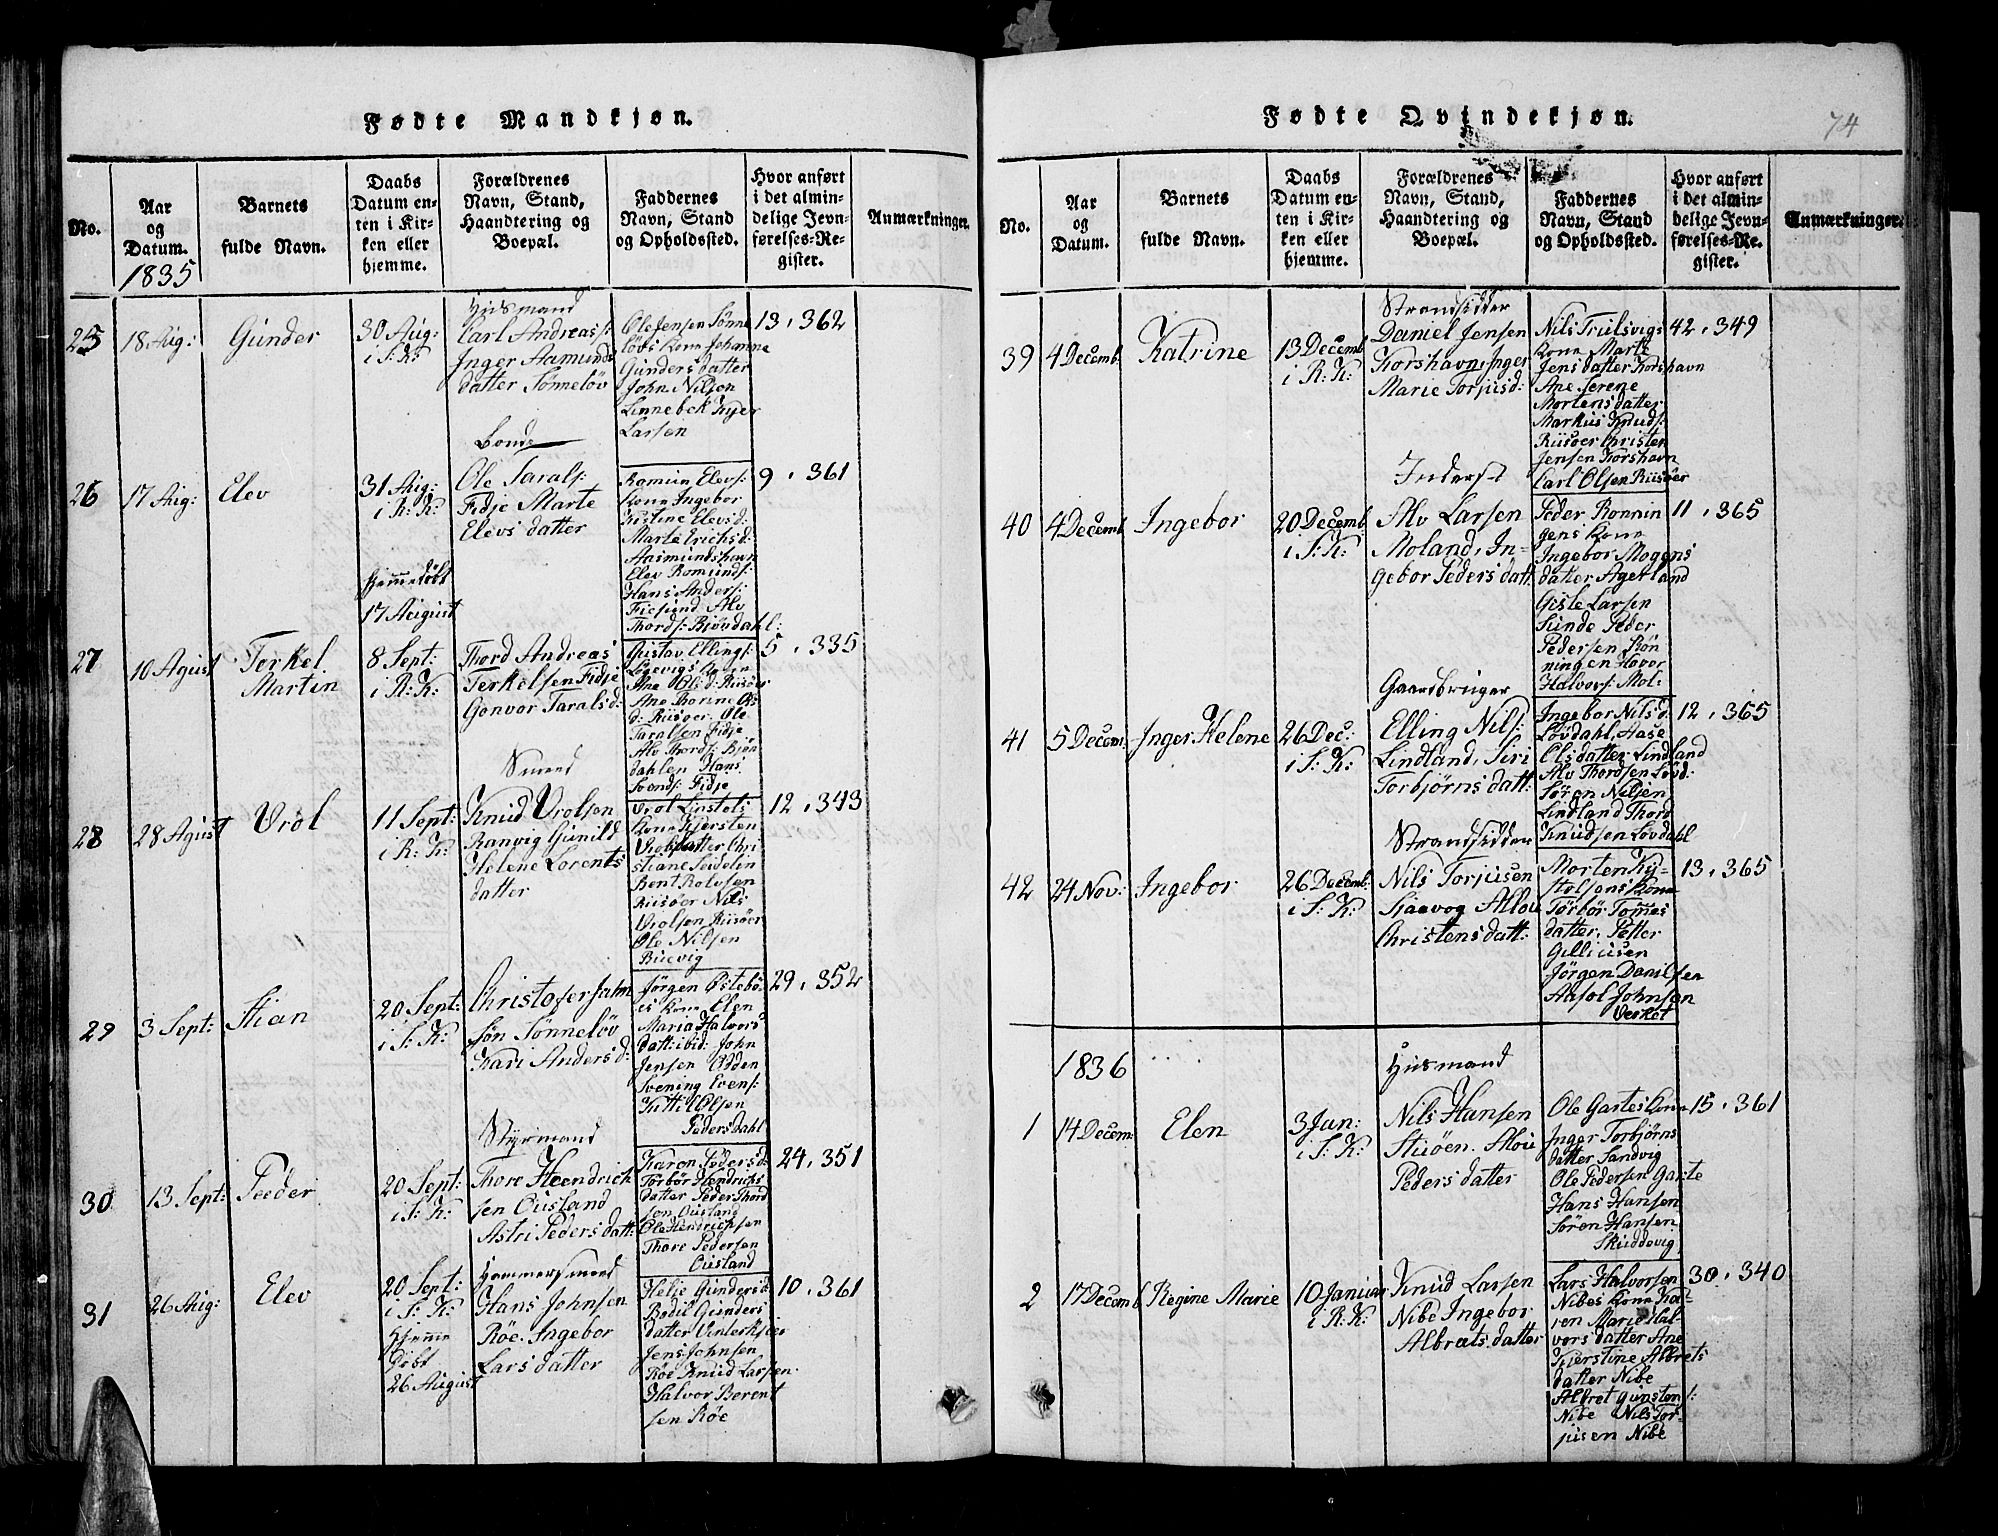 Fødte Mandkjøn.
No.
Aar
og
Datum.
1835
Barnets
fulde Navn.
Daabs
Datum en-
ten i Kir-
ken eller
hjemme.
Forældrenes
Navn, Stand,
Haandtering og
Boepæl.
Faddernes
Navn, Stand
og Opholdssted.
Hvor anført
i det almin-
delige Jevn-
førelses-Re-
gister.
Anmærkninger.
25
18 Aug:
Gunder
30 Aug:
i S: K:
Husmand
Carl Andreas s:
Inger Aamunds
datter Sønneløv
Ole Jensen Sønne
løvs Kone Johanne
Gunders datter
John Nilson
Linnebek Kyer
Larsen
13, 362
26
17 Aug:
Elev
31 Aug:
i R: K:
Hjemmedøbt
17 August
Bonde
Ole Tarals:
Fidje Marte
Elevs datter
Romun Elevs:
Kone Ingebor
Kirstine Elevs d:
Marte Erichs d:
Aasmundshavn
Elev Romunds:
Hans Anders:
Fiesund Alv
Thords: Bjøndahl:
9, 361
27
10 Agust
Terkel
Martin
8 Sept:
i R: K:
Thord Andreas
Terkelsen Fidje
Gonvor Tarals d:
Gustav Ellings:
Løevigs Kone
Ane Ols d: Riisøer
Ane Thorine Ols
d: Riisøer. Ole
Taralsen Fidje
Alv Thords: Bjøn
dahlen Hans
Svends: Fidje
5, 335
28
28 Agust
Vrol
11 Sept:
i R: K:
Smed
Knud Vrolsen
Ranvig Gunild
Helene Lorents
datter
Vrol Linstøls
Kone Kjersten
Vrols datter Chri
stiane Seidelin
Bent Rolvsen
Riisøer Nils
Vrolsen Riisøer
Ole Nilsen
Buevig
12, 343
29
3 Sept:
Stian
20 Sept:
i S: K:
Christofer Salm
søn Sønneløv
Kari Anders d:
Jørgen Østebø
es Kone Elen
Maria Halvors
datt: ibid: John
Jensen Odden
Svening Evens:
Kittil Olsen
Pedersdahl
29, 352
30
13 Sept:
Peeder
20 Sept:
i S: K:
Styrmand
Thore Heendrich
sen Ousland
Astri Peders datt:
Karen Peders d:
Torbør Hendrichs
datter Peder Thord
sen Ousland
Ole Hendrichsen
Thore Pedersen
Ousland
24, 351
31
26 Aug:
Elev
20 Sept:
i S: K:
Hjemme
døbt
26 August
Hammersmed
Hans Johnsen
Røe. Ingebor
Lars datter
Helje Gunders d:
Bodil Gunders
datter Vinterkjær
Jens Johnsen
Røe Knud Larsen
Halvor Berent
sen Røe
10, 361
Fødte Qvindekjøn.
74
No.
Aar
og
Datum.
Barnets
fulde Navn.
Daabs
Datum en-
ten i Kir-
ken eller
hjemme.
Forældrenes
Navn, Stand,
Haandtering og
Boepæl.
Faddernes
Navn, Stand
og Opholdssted.
Hvor anført
i det almin-
delige Jevn-
førelses-Re-
gister.
Anmærkninger.
39
4 Decemb
Katrine
13 Decemb
i R: K:
Strandsidder
Daniel Jensen
Korshavn, Inger
Marie Torjus d:
Nils Trulsvigs
Kone Marte
Jens datter Korshavn
Ane Serene
Mortens datter
Markus Knuds:
Riisøer Christen
Jensen Korshavn
Carl Olsen Riisøer
42, 349
40
4 Decemb
Ingebor
20 Decemb
i S: K:
Inderst
Alv Larsen
Moland, In-
gebor Peders datt:
Peder Ronnin
gens Kone
Ingebor Mogens
datter Ageland
Gisle Larsen
Sunde Peder
Pedersen Røn
ningen Hovor
Halvors: Mol-
11, 365
41
5 Decem:
Inger Helene
26 Dec:
i S: K:
Gaardbruger
Elling Nils:
Lindland, Siri
Torbjørns datt:
Ingebor Nils d:
Løvdahl, Aase
Ols datter Lindland
Alv Thordsen Løvd:
Søren Nilsen
Lindland Thord
Knudsen Løvdahl
12, 365
42
24 Nov:
Ingebor
26 Decemb:
i S: K:
Strandsidder
Nils Torjusen
Sjaavog Alou
Christens datt:
Morten Ky-
stolsens Kone
Torbør Tommes
datter, Petter
Gilliusen
Jørgen Danilsen
Aasol Johnsen
Verket
13, 365
1836
1
14 Decem:
Elen
3 Jan:
i S: K:
Husmand
Nils Hansen
Stuøen. Alou
Peders datter
Ole Gartes Kone
Inger Torbjørns
datter Sandvig
Ole Pedersen Garte
Hans Hansen
Søren Hansen
Skuddevig
15, 361
2
17 Decemb
Regine Marie
10 Januar
i R: K:
Knud Larsen
Nibe Ingebor
Albrets datter
Lars Halvorsen
Nibes Kone Ka-
ren Marie Hal-
vors datter Ane
Kjerstine Albrets
datter Nibe
Albret Gunstens:
Nibe Nils Tor-
jusen Nibe
30, 340